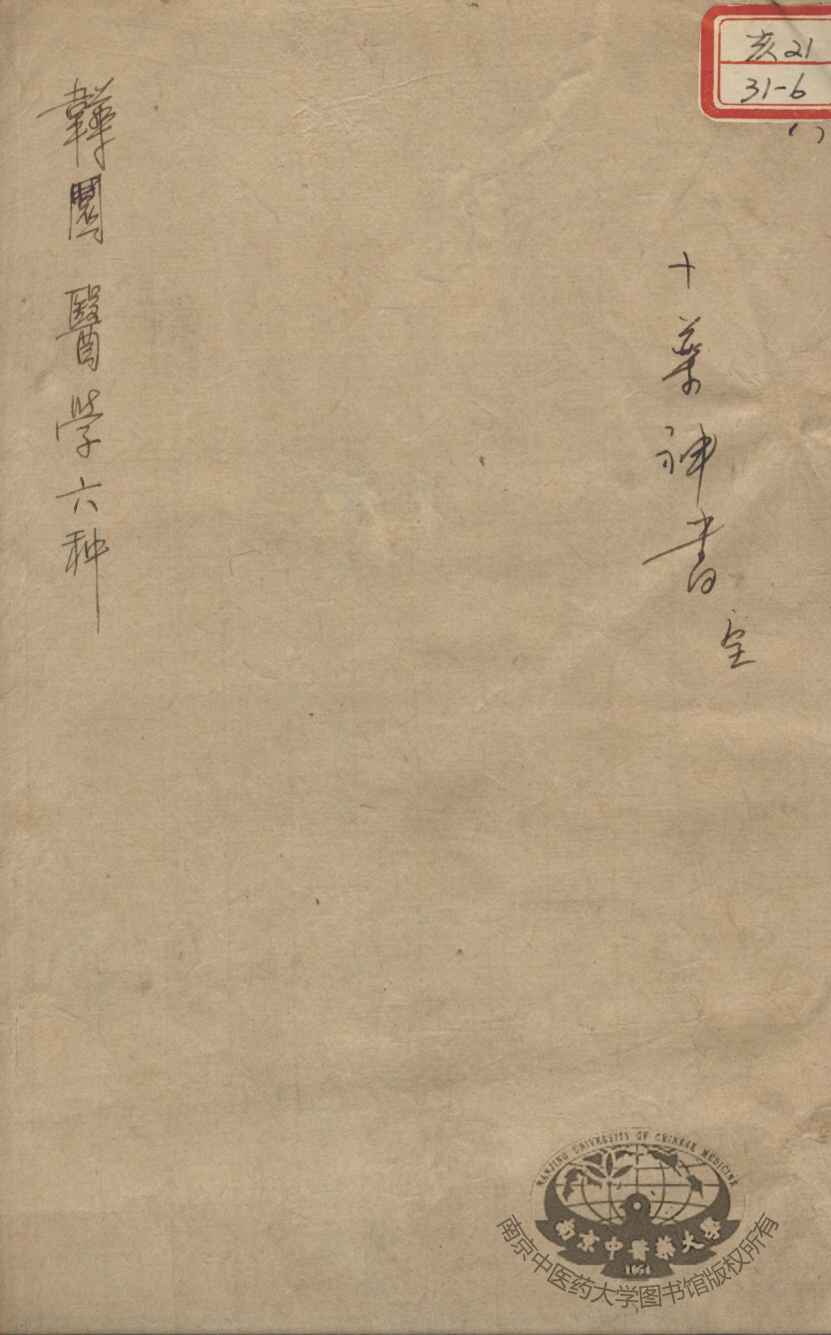 亥21
31-6
十薬神書全
韡園醫学六种
NANJING UNIVERSITY OF CHINESE MEDICINE
南京中醫藥大學
1954
南京中医药大学图书馆版权所有